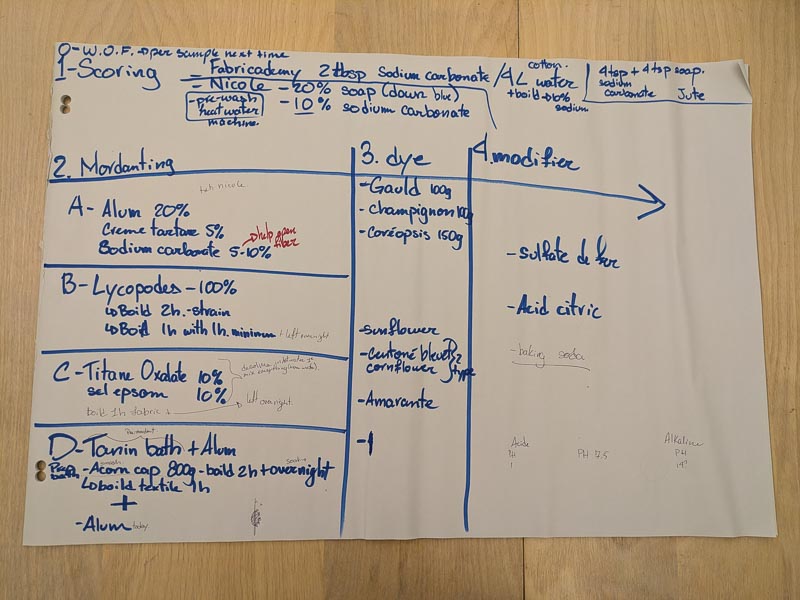 0-W.O.F. → per sample next time
1-Scoring
- Fabricademy 2 tbsp Sodium carbonate /4L water
cotton.
+ boild → 10% sodium
4tsp + 4tsp soap.
sodium carbonate Jute
- Nicole - 20% soap (dawn blue)
- 10% sodium carbonate
- pre-wash
heat water
machine.
2. Mordanting
nicole
A- Alum 20%
Creme tartare 5%
Sodium carbonate 5-10%
→ help open fiber
B- Lycopodes - 100%
↳ Boild 2h. - strain
↳ Boil 1h with 1h. minimum + left overnight
C- Titane Oxalate 10%
sel epsom 10%
boil 1h fabric +
left overnight.
D- Tanin bath + Alum
- Acorn cap 800g - boild 2h + overnight
↳ boild textile 1h
+
- Alum today
3. dye
- Gauld 100g
- champignon 100g
- coréopsis 150g
- sunflower
- centoné bleuet
cornflower
2 type
- Amarante
4. modifier
- sulfate de fer
- Acid citric
- baking soda
Acide
PH
1
PH 7.5
Alkaline
PH
14